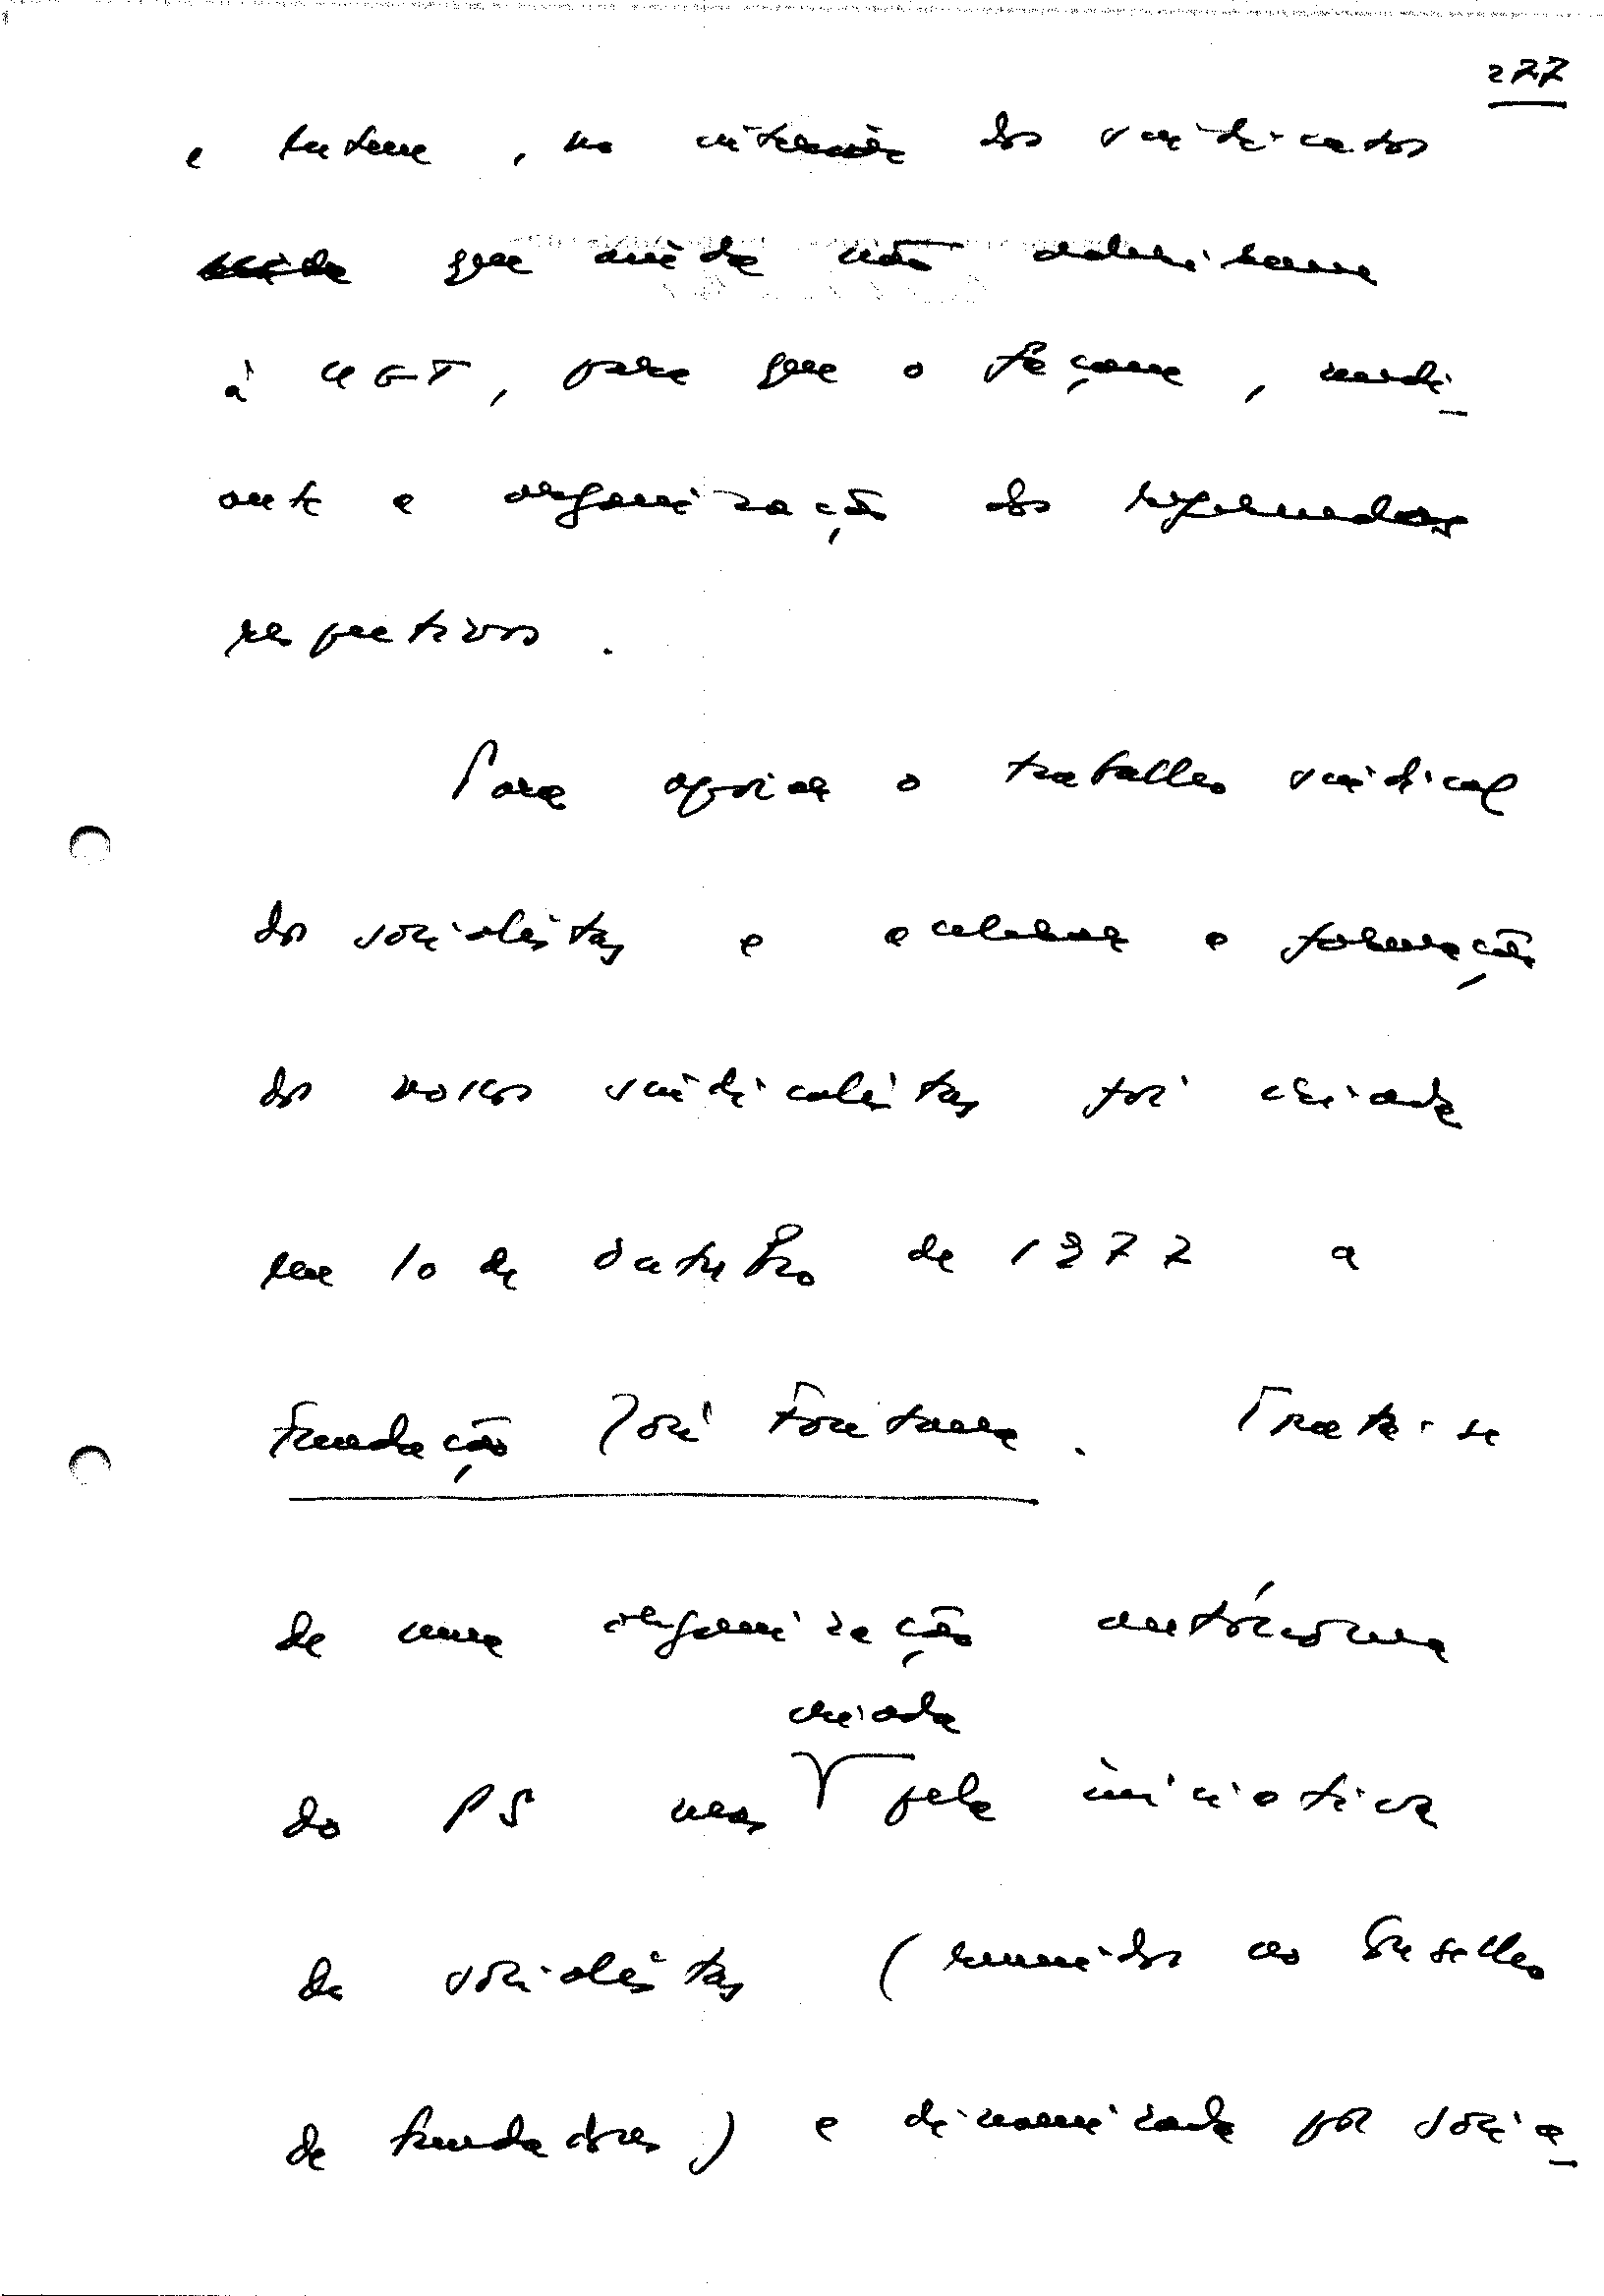 277
e lutem, no interior dos sindicatos
que ainda não aderiram
à UGT, para que o façam, medi-
ante a organização dos
respectivos.
Para apoiar o trabalho sindical
dos socialistas e acelerar a formação
dos nossos sindicalistas foi criada
em 10 de Outubro de 1977 a
Fundação José Fontana. Trata-se
de uma organização autónoma
criada
do PS mas pela iniciativa
de socialistas (reunidos no Conselho
de fundadores) e dinamizada por socia-